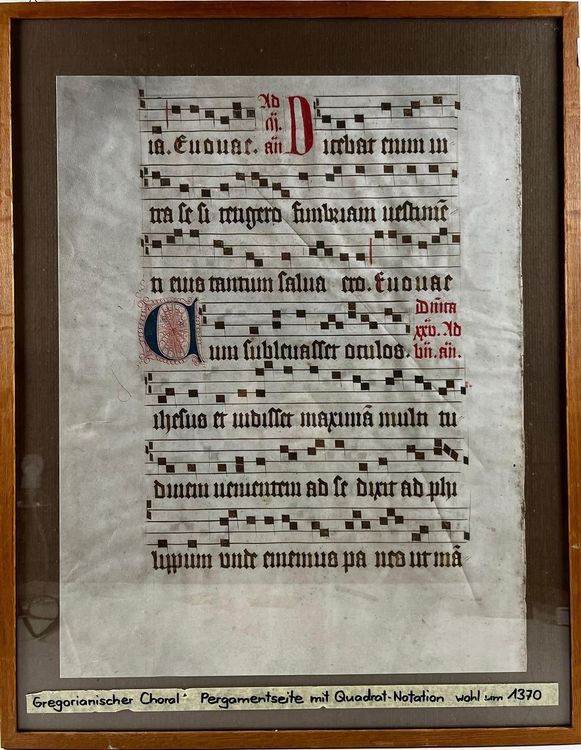 ia. Euouae. Ad m̄. an̄ Dicebat enim in
tra se si tetigero fimbriam uestimē
ti eius tantum salua ero. Euouae
Dn̄ica xxv. Ad bn̄. an̄.
Cum subleuasset oculos.
ihesus et uidisset maximā multi tu
dinem uenientem ad se dixit ad phi
lippum unde ememus pa nes ut mā
Gregorianischer Choral Pergamentseite mit Quadrat-Notation wohl um 1370